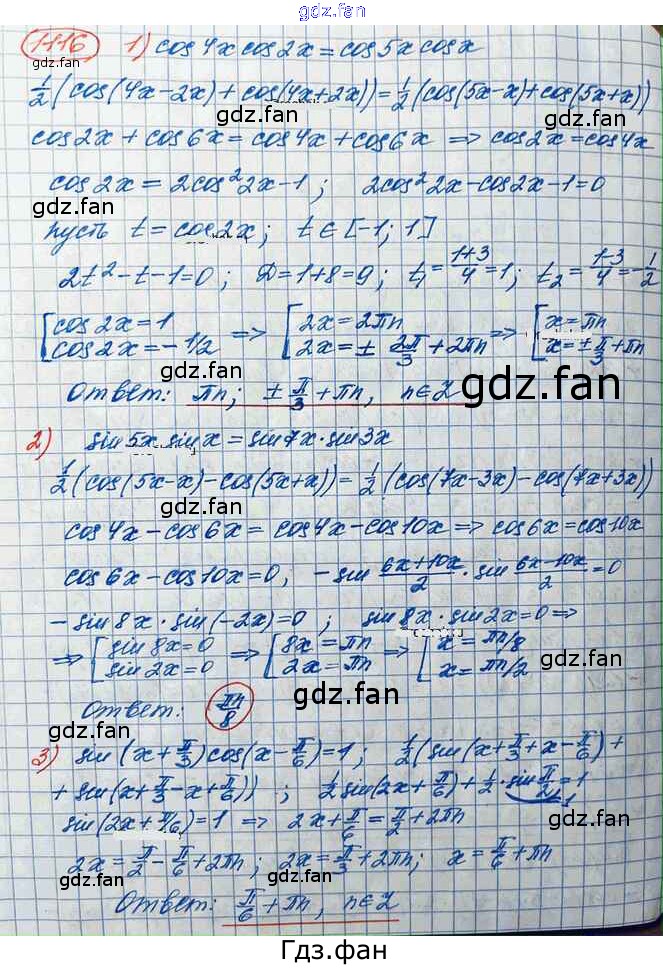 gdz.fan
1116 1) cos4x cos2x = cos5x cosx
½(cos(4x-2x) + cos(4x+2x)) = ½(cos(5x-x)+cos(5x+x))
cos2x + cos6x = cos4x + cos6x => cos2x = cos4x
cos2x = 2cos²2x-1; 2cos²2x-cos2x-1=0
gdz.fan
пусть t = cos2x; t ∈ [-1; 1]
2t²-t-1=0; D=1+8=9; t₁=(1+3)/4=1; t₂=(1-3)/4=-1/2
[cos2x=1 => [2x=2πn => [x=πn
cos2x=-1/2 2x=±2π/3+2πn x=±π/3+πn
Ответ: πn; ±π/3+πn, n∈Z
gdz.fan gdz.fan
2) sin5x sinx = sin7x·sin3x
½(cos(5x-x)-cos(5x+x)) = ½(cos(7x-3x)-cos(7x+3x))
gdz.fan
cos4x-cos6x = cos4x-cos10x => cos6x = cos10x
cos6x-cos10x=0; -sin (6x+10x)/2 · sin (6x-10x)/2 = 0
-sin8x·sin(-2x)=0; sin8x·sin2x=0 =>
=> [sin8x=0 => [8x=πn => [x=πn/8
sin2x=0 2x=πn x=πn/2
gdz.fan
gdz.fan
Ответ: πn/8
gdz.fan
3) sin(x+π/3)cos(x-π/6)=1; ½(sin(x+π/3+x-π/6)+
+sin(x+π/3-x+π/6)); ½sin(2x+π/6)+½·sin π/2=1
1
sin(2x+π/6)=1 => 2x+π/6=π/2+2πn
2x=π/2-π/6+2πn; 2x=π/3+2πn; x=π/6+πn
gdz.fan gdz.fan
Ответ: π/6+πn, n∈Z
Гдз.фан